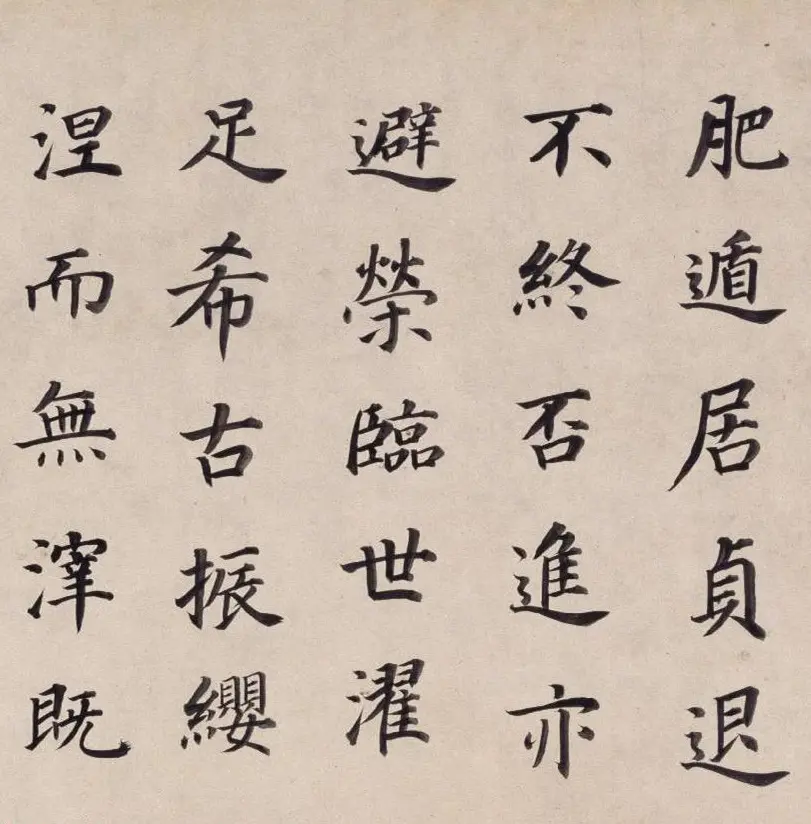 肥遁居貞退
不終否進亦
避榮臨世濯
足希古振纓
涅而無滓既